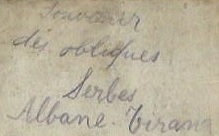 Souvenir
des obliques
Serbes
Albane. Tirana